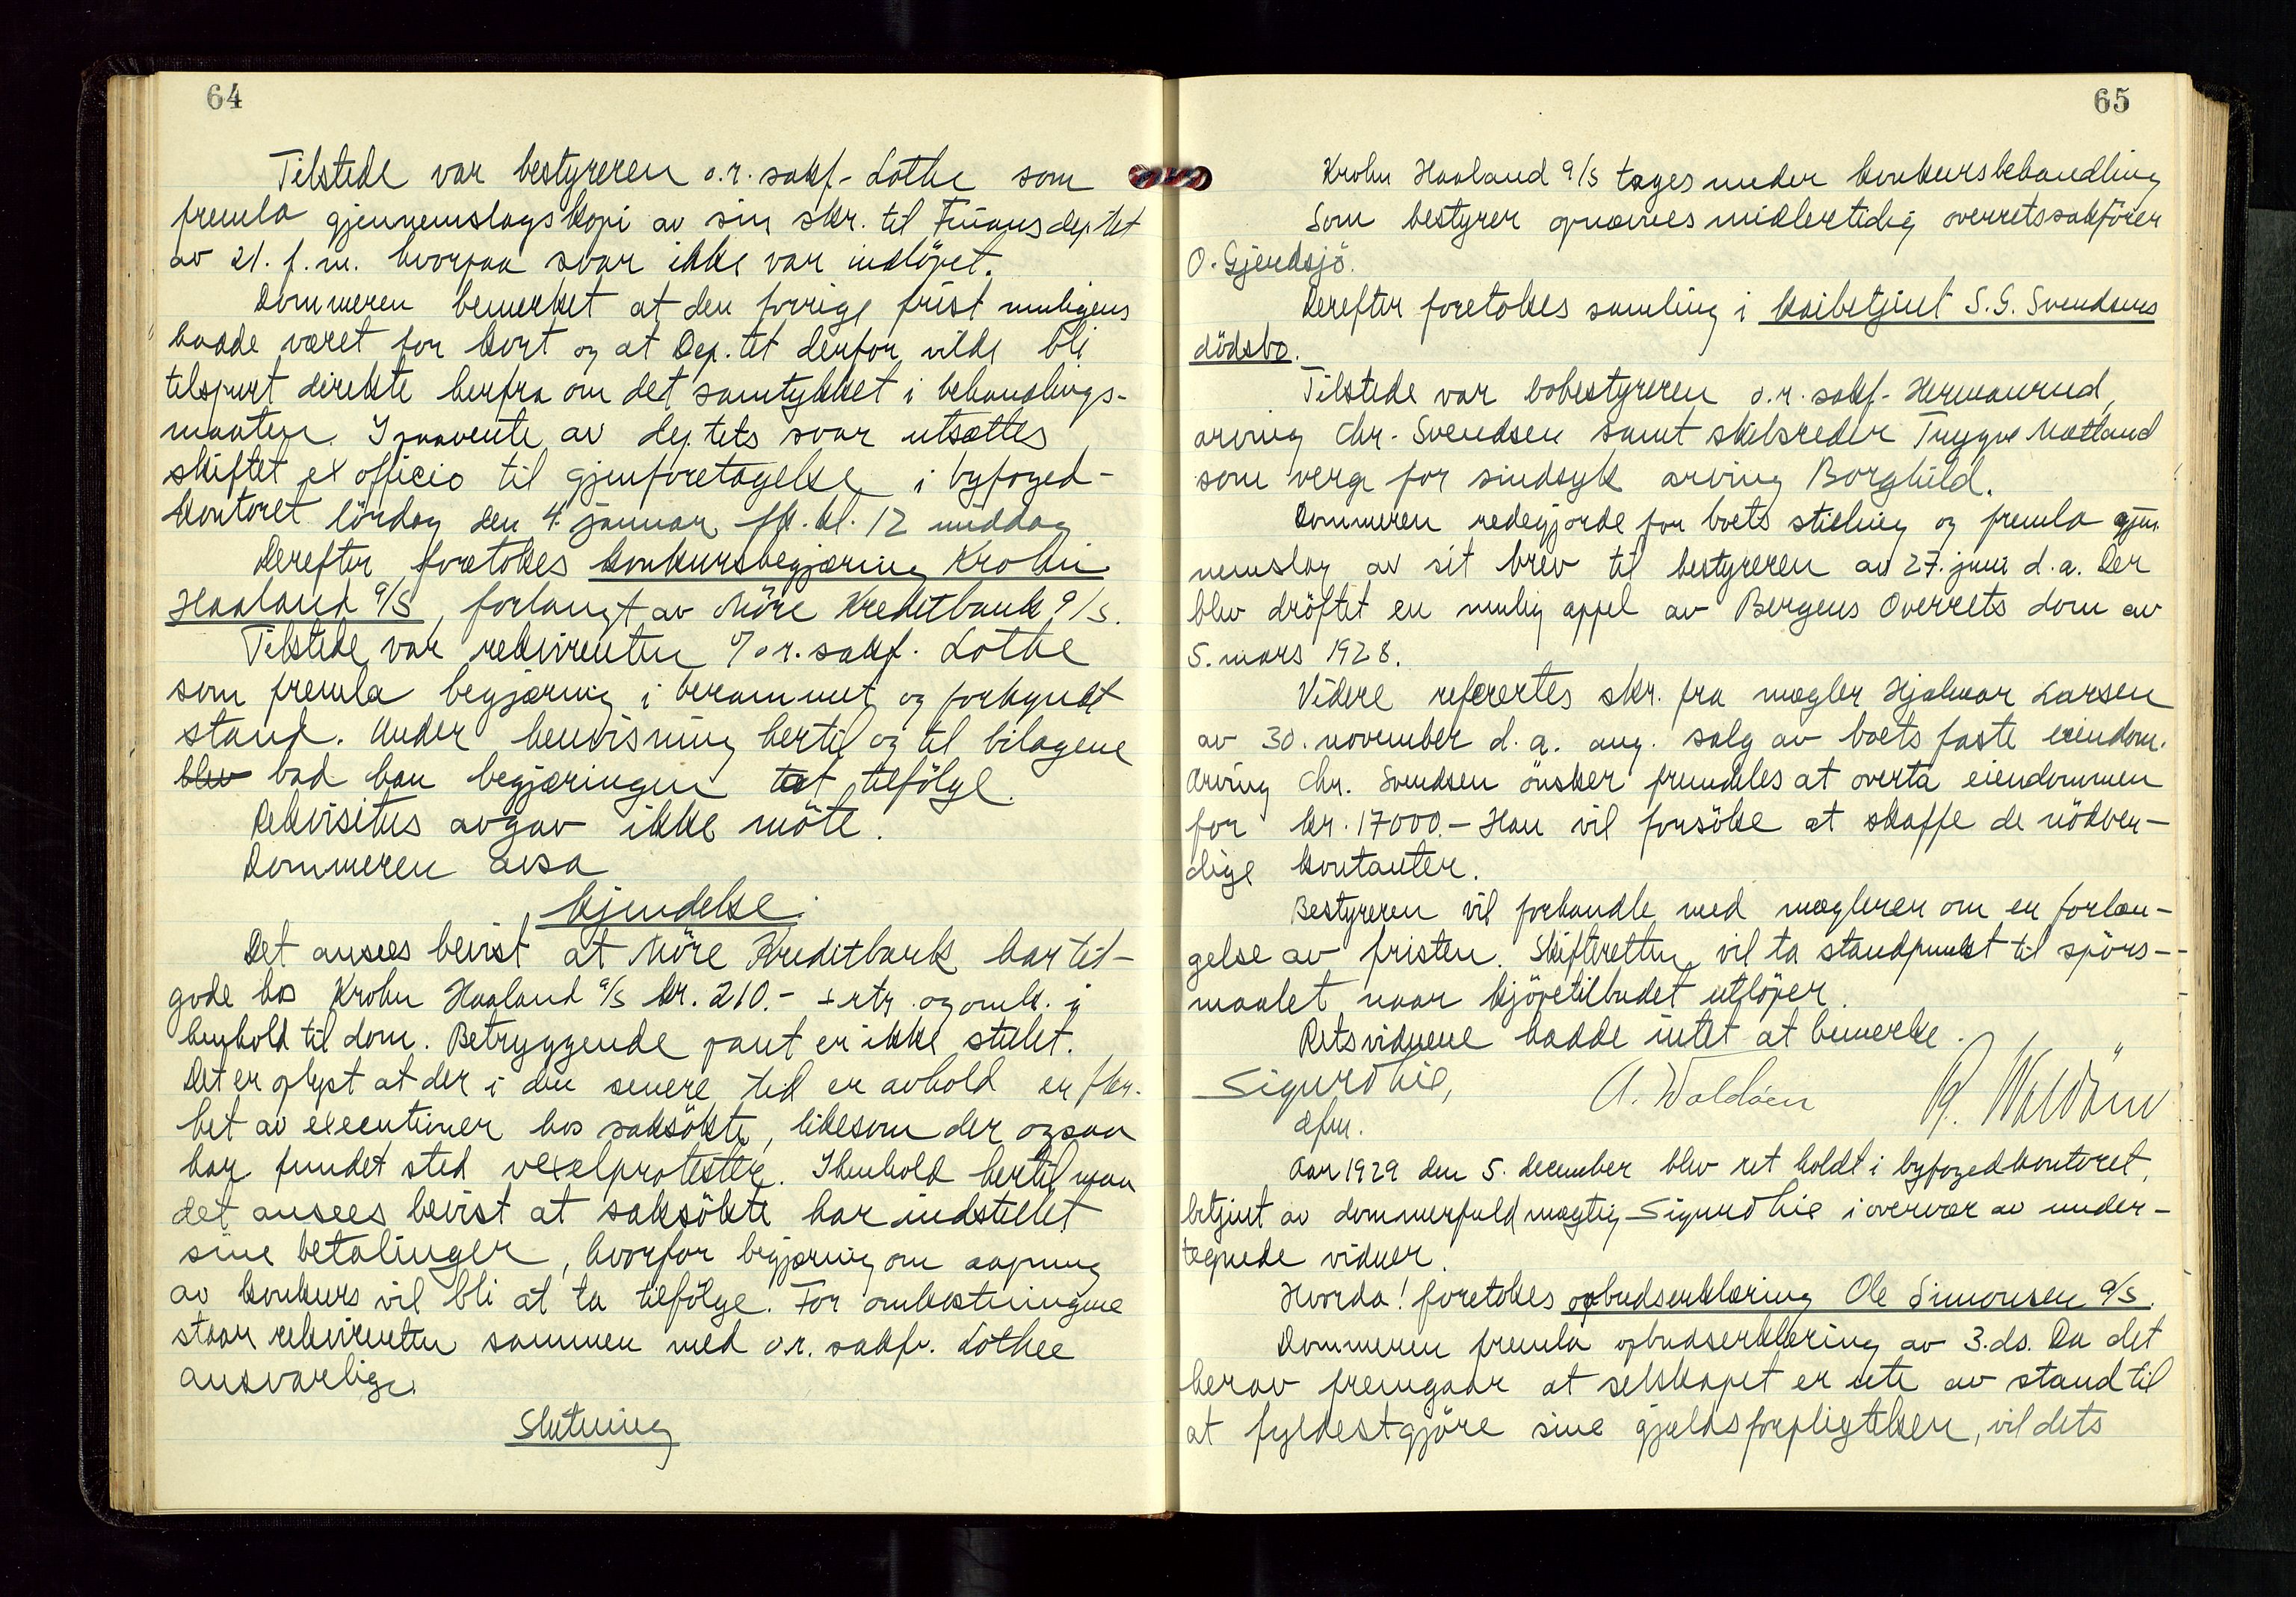 64
Tilstede var bestyreren o.r.sakf. Lothe som
fremla gjennemslagskopi av sin skr. til Finansdeptet
av 21. f.m. hvorpaa svar ikke var indløpet.
Dommeren bemerket at den forrige frist muligens
hadde været for kort og at Dep.tet derfor vilde bli
tilspurt direkte herfra om det samtykket i behandlings-
maaten. I paavente av dep.tets svar utsattes
skiftet ex officio til gjenforetagelse i byfoged-
kontoret lördag den 4. januar fk. kl. 12 middag
Derefter foretokes konkursbegjæring Krohn
Haaland a/s, forlangt av Möre Kreditbank a/s.
Tilstede var rekvirenten v/o.r.sakf. Lothe
som fremla begjæring i berammet og forkyndt
stand. Under henvisning hertil og til bilagene
blev bad han begjæringen tat tilfölge.
Rekvisitus avgav ikke möte.
Dommeren avsa
kjendelse:
Det ansees bevist at Möre Kreditbank har til-
gode hos Krohn Haaland a/s kr. 210.- + rtr. og omk. i
henhold til dom. Betryggende pant er ikke stillet.
Det er oplyst at der i den senere tid er avhold en fler-
het av executioner hos saksökte, likesom der ogsaa
har fundet sted vexelprotester. I henhold hertil maa
det ansees bevist at saksökte har indstillet
sine betalinger, hvorfor begjæring om aapning
av konkurs vil bli at ta tilfölge. For omkostningene
staar rekvirenten sammen med o.r.sakfr. Lothe
ansvarlige.
Slutning
65
Krohn Haaland a/s tages under konkursbehandling
Som bestyrer opnævnes midlertidig overretssakförer
O. Gjendsjö.
Derefter foretokes samling i kaibetjent S. G. Svendsens
dödsbo.
Tilstede var bobestyreren o.r.sakf. Hermanrud,
arving Chr. Svendsen samt skibsreder Trygve Matland
som verge for sindsyk arving Borghild.
Dommeren redegjorde for boets stilling og fremla gjen-
nemslag av sit brev til bestyreren av 27. juni d.a. Der
blev dröftet en mulig appel av Bergens Overrets dom av
5. mars 1928.
Videre refererte skr. fra mægler Hjalmar Larsen
av 30. november d.a. ang. salg av boets faste eiendom.
Arving Chr. Svendsen önsker fremdeles at overta eiendommen
for kr. 17000.- Han vil forsöke at skaffe de nödven-
dige kontanter.
Bestyreren vil forhandle med mægleren om en forlæn-
gelse av fristen. Skifteretten vil ta standpunkt til spörs-
maalet naar kjöpetilbudet utlöper.
Retsvidnene hadde intet at bemerke.
Sigurd Lie,
dfm.
A. Waldöen
Aar 1929 den 5. december blev ret holdt i byfogedkontoret,
betjent av dommerfuldmægtig Sigurd Lie i overvær av under-
tegnede vidner.
Hvorda! foretokes opbudserklæring Ole Simonsen a/s.
Dommeren fremla opbudserklæring av 3. ds. Da det
herav fremgaar at selskapet er ute av stand til
at fyldestgjöre sine gjældsforpligtelser, vil dets